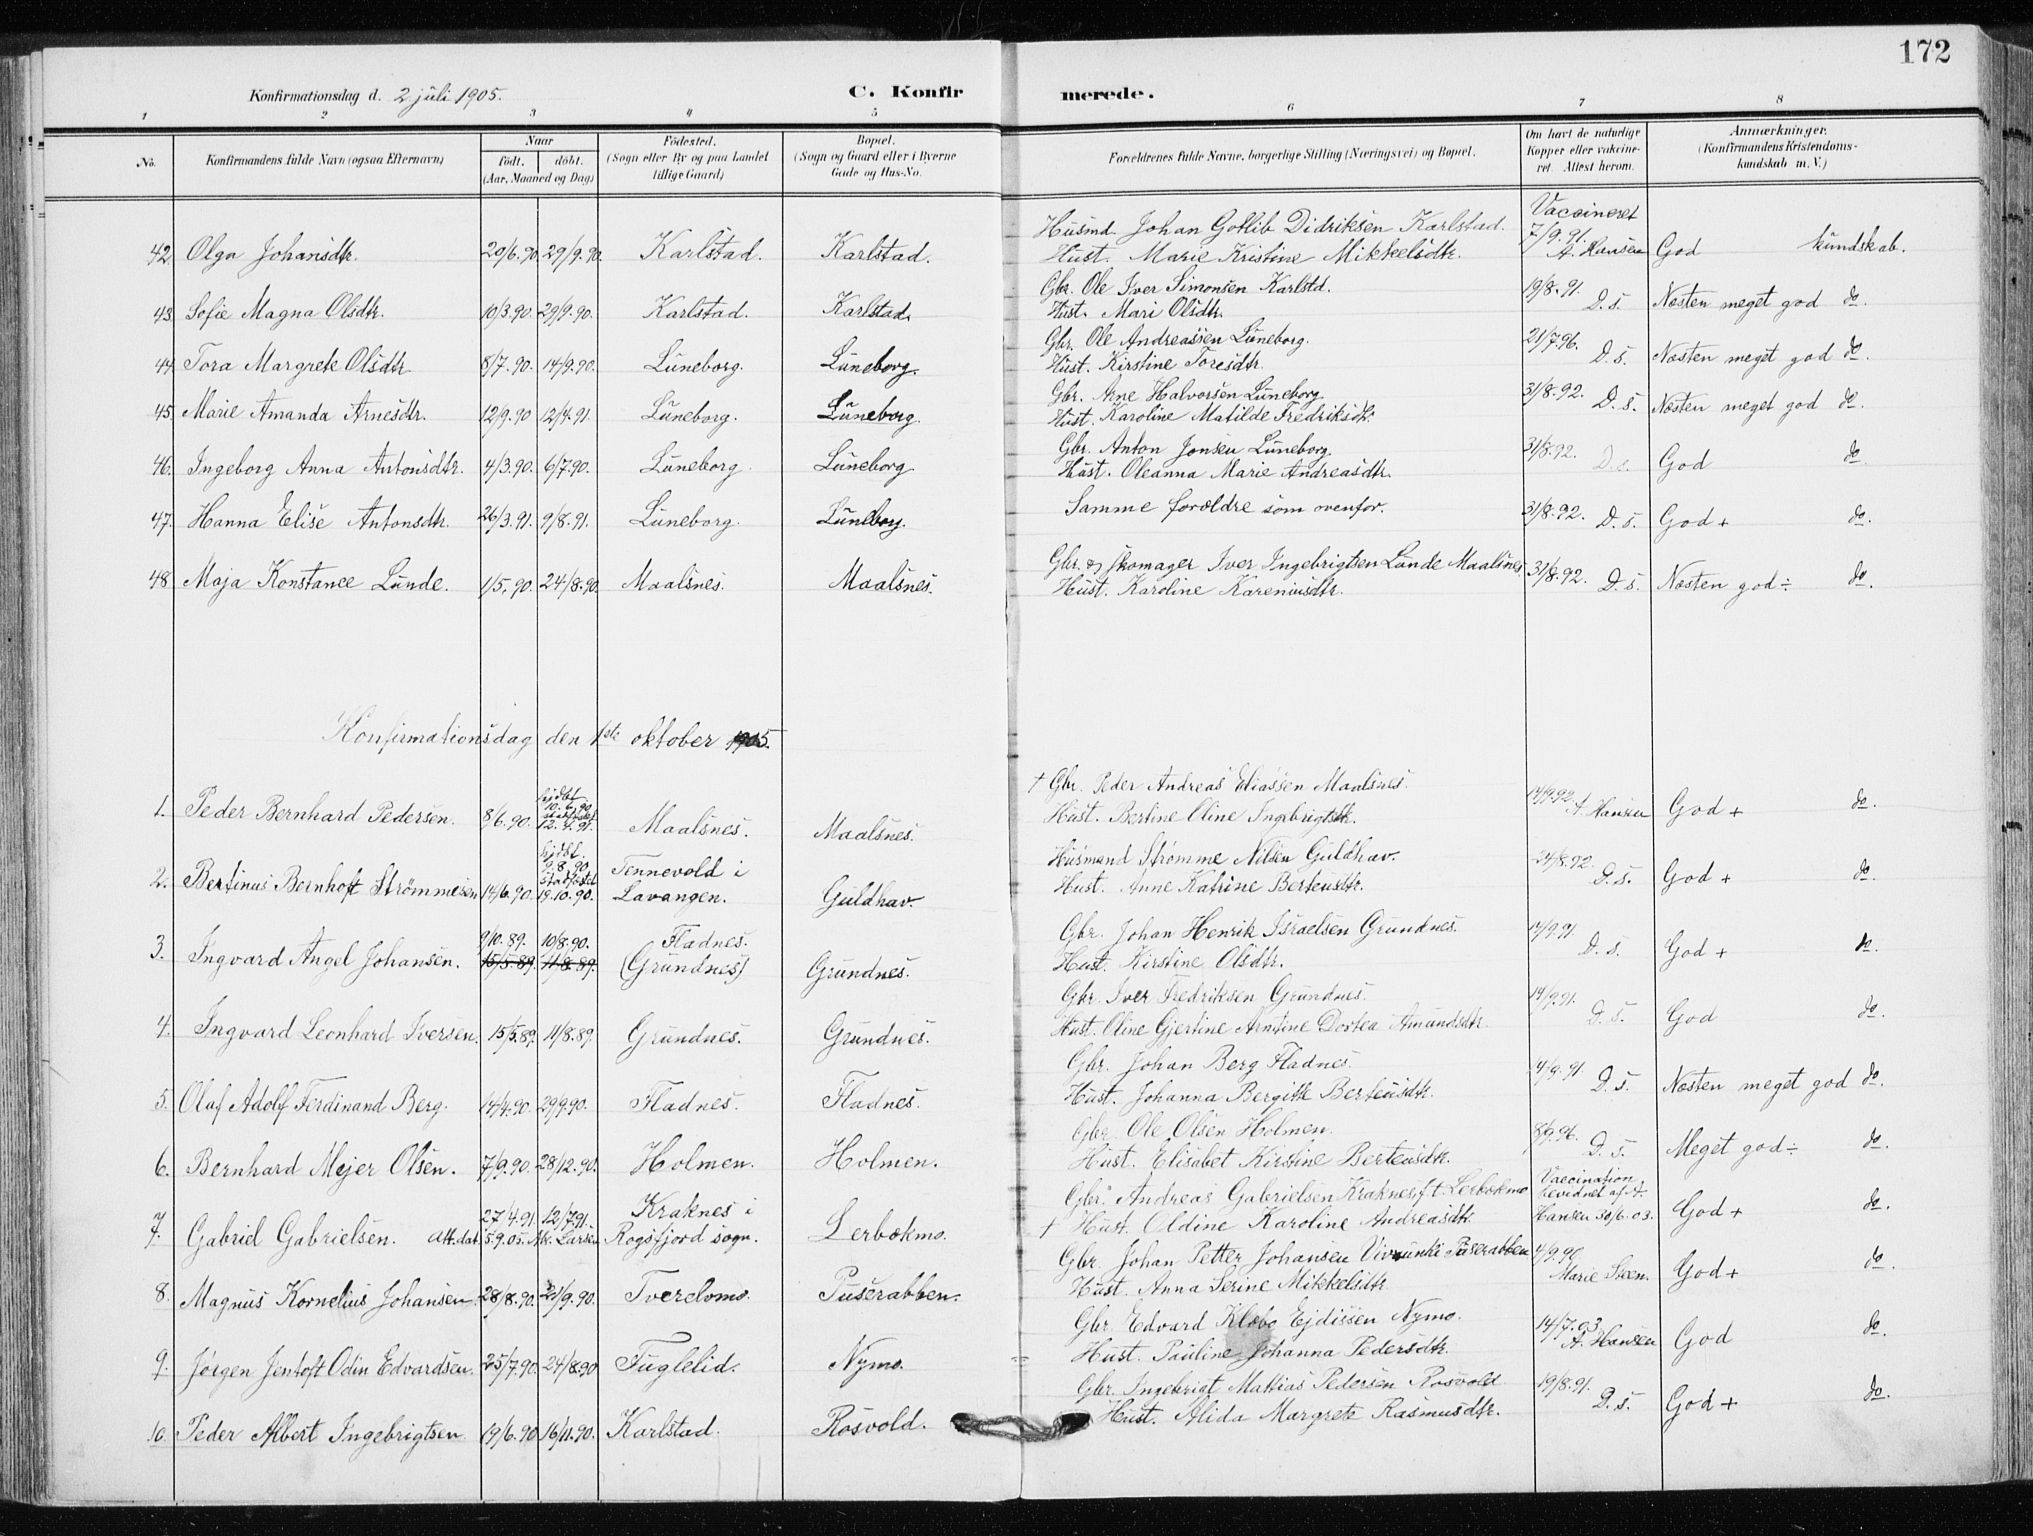 172
Konfirmationsdag d. 2 juli 1905.
C. Konfirmerede.
1 2 3 4 5 6 7 8
No.
Konfirmandens fulde Navn (ogsaa Efternavn)
Naar
født. døbt.
(Aar, Maaned og Dag)
Fødested.
(Sogn eller By og paa Landet
tillige Gaard)
Bopæl.
(Sogn og Gaard eller i Byerne
Gade og Hus-No.
Forældrenes fulde Navne, borgerlige Stilling (Næringsvei) og Bopæl.
Om havt de naturlige
Kopper eller vakcine-
ret. Attest herom.
Anmærkninger.
(Konfirmandens Kristendoms-
kundskab m. V.)
42. Olga Johansdtr. 20/6.90. 29/9.90. Karlstad. Karlstad. Husmd Johan Gotlib Didriksen Karlstad. Vaccineret
Hust. Marie Kristine Mikkelsdtr. 7/9.91. A. Hansen God kundskab.
43. Sofie Magna Olsdtr. 10/3.90. 29/9.90. Karlstad. Karlstad. Gbr. Ole Iver Simonsen Karlstd.
Hust. Mari Olsdtr. 19/8.91. D. s. Næsten meget god do.
44. Tora Margrete Olsdtr. 8/7.90. 14/9.90. Lüneborg. Lüneborg. Gbr. Ole Andreassen Lüneborg.
Hust. Kirstine Toresdtr. 21/7.96. D. s. Næsten meget god do.
45. Marie Amanda Arnesdtr. 12/9.90 12/4.91. Lüneborg. Lüneborg. Gbr. Arne Halvorsen Lüneborg.
Hust. Karoline Matilde Fredriksdtr. 31/8.92. D. s. Næsten meget god do.
46. Ingeborg Anna Antonsdtr. 4/3.90. 6/7.90. Lüneborg. Lüneborg. Gbr. Anton Jonsen Lüneborg.
Hust. Oleanna Marie Andreasdtr. 31/8.92. D. s. God do
47. Hanna Elise Antonsdtr. 26/3.91. 9/8.91. Lüneborg. Lüneborg. Samme forældre som ovenfor. 31/8.92. D. s. God + do.
48. Maja Konstance Lunde. 1/5.90. 24/8.90. Maalsnes. Maalsnes. Gbr. & skomager Iver Ingebrigtsen Lunde Maalsnes
Hust. Karoline Kareniusdtr. 31/8.92. D. s. Næsten god ÷ do.
Konfirmationsdag den 1ste oktober 1905.
1. Peder Bernhard Pedersen. 8/6.90. hjdbt 10.6.90 stadfæstet 12.4.91. Maalsnes. Maalsnes. † Gbr. Peder Andreas Eliassen Maalsnes.
Hust. Bertine Oline Ingebrigtsdtr. 14/9.92. A. Hansen God + do.
2. Bertinus Bernhoft Strømmesen 14/6.90. hjdbt. 9.8.90. stadfæstet 19.10.90. Tennevold i
Lavangen. Guldhav. Husmand Strømme Nilsen Guldhav.
Hust. Anne Katrine Berteusdtr. 24/8.92. D. s. God + do.
3. Ingvard Angel Johansen. 9/10.89. 10/8.90. Fladnes.
15/5.89. 11/8.89. (Grundnes) Grundnes. Gbr. Johan Henrik Israelsen Grundnes.
Hust. Kirstine Olsdtr. 14/9.91 D. s. God + do.
4. Ingvard Leonhard Iversen. 15/5.89. 11/8.89. Grundnes. Grundnes. Gbr. Iver Fredriksen Grundnes.
Hust. Oline Gjertine Arntine Dortea Amundsdtr. 14/9.91. D. s. God do.
5. Olaf Adolf Ferdinand Berg. 14/4.90. 29/9.90. Fladnes. Fladnes. Gbr. Johan Berg Fladnes.
Hust. Johanna Bergitte Berteusdtr. 14/9.91 D. s. Næsten meget god do.
6. Bernhard Mejer Olsen. 7/9.90. 28/12.90. Holmen. Holmen. Gbr. Ole Olsen Holmen.
Hust. Elisabet Kirstine Berteusdtr. 8/9.96. D. s. Meget god ÷ do.
7. Gabriel Gabrielsen. Att. dat. 27/4.91. 12/7.91. 5.9.05. Larsen Kraknes i
Rogsfjord sogn. Lerbækmo. Gbr. Andreas Gabrielsen Kraknes, f. t. Lerbækmo
† Hust. Oldine Karoline Andreasdtr. Vaccination bevidnet af A. Hansen 30/6.03. God + do.
8. Magnus Kornelius Johansen. 28/8.90. 21/9.90. Tverelvmo. Puserabben. Gbr. Johan Petter Johansen Puserabben
Hust. Anna Serine Mikkelsdtr. 4/9.96 Marie Steen. God + do.
9. Jørgen Jentoft Odin Edvardsen. 25/7.90. 24/8.90 Fuglelid. Nymo. Gbr. Edvard Klæbo Ejdissen Nymo.
Hust. Pauline Johanna Pedersdtr. 14/7.03. A. Hansen God do.
10. Peder Albert Ingebrigtsen. 19/6.90 16/11.90. Karlstad. Rosvold. Gbr. Ingebrigt Mattias Pedersen Rosvold
Hust. Alida Margrete Rasmusdtr. 19/8.91. D. s. God + do.